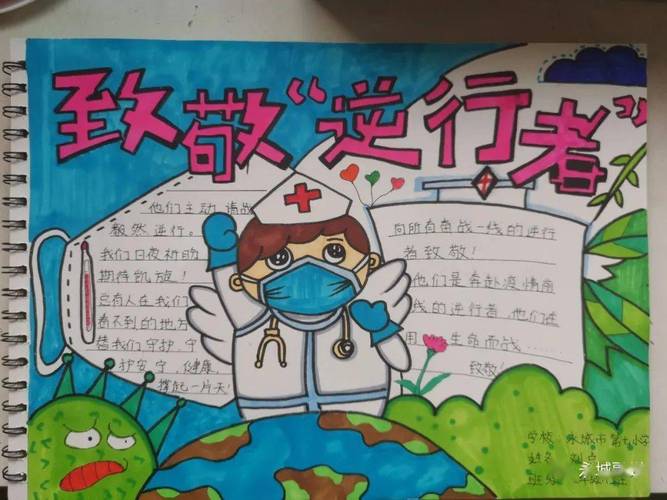 致敬“逆行者”
他们主动请战
毅然逆行。
我们日夜祈盼
期待凯旋！
总有人在我们
看不到的地方
替我们守护，守
护安宁，健康，
撑起一片天！
向所有奋战一线的逆行
者致敬！
他们是奔赴疫情前
线的逆行者，他们在
用 生命而战……
致敬！
学校 市第十小学
姓名 刘
班级